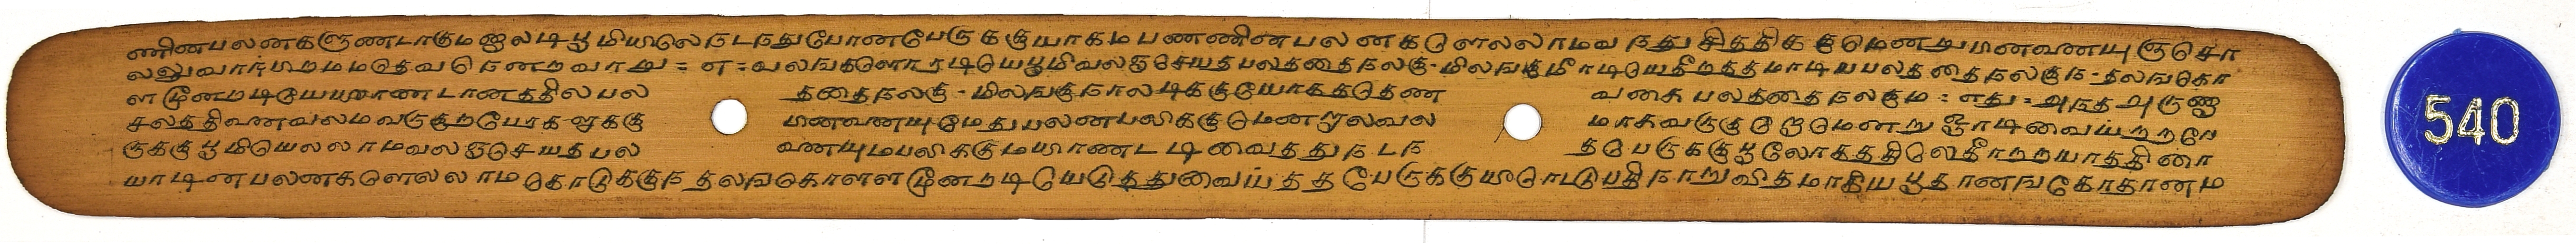 ணினபலனகளுணடாகும ஐலடி பூமியிலெ நடநதுபோனபேருககு யாகம பணணினபலனகளெலலாம வநது சிததிககுமெனறு மனவணயுஞசொ
லலுவார மறறுமடுதவ னெனறவாறு = எ = வலஙகளோரடியெ பூமிவலஞசேயத பலததை நலகு - மிலஙகுமீரடியெ தீறததமாடிய பலததை நலகுந - தலஙகொ
ள மூனமடியெயாணடானததில பல ததை நலகு - மிலஙகு நாலடிககு யோகததெண வகை பலததை நலகும = எது = அநத அருணு
சலததிவணவலம வருகுறபேரககு ஒககு மனவணயுமேது பலனபலிககுமெனறுலவல மாகவருகுறெமெனறு ஓரடி வைய்றறபே
ருககு பூமியெலலாம வலஞசெயத பல வணயும பலிககும யிரணடடி வைதது நடந தபெருககு பூலோகததிலெ தீரறறயாததிரை
யாடின பலனகளெலலாம கொடுககுந தலஙகொளள மூனறடி யெடுதது வைய்தத பேருககு யிரெடடு பதிநாறுவிதமாகிய பூதானங கோதானம
540